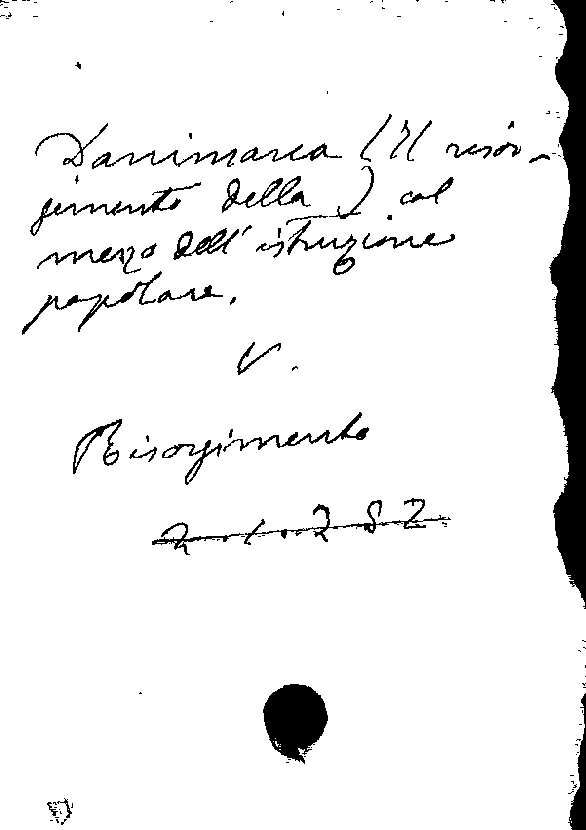 Danimarca (Il risor-
gimento della ) col
mezzo dell'istruzione
popolare.
V.
Risorgimento
2.1.282